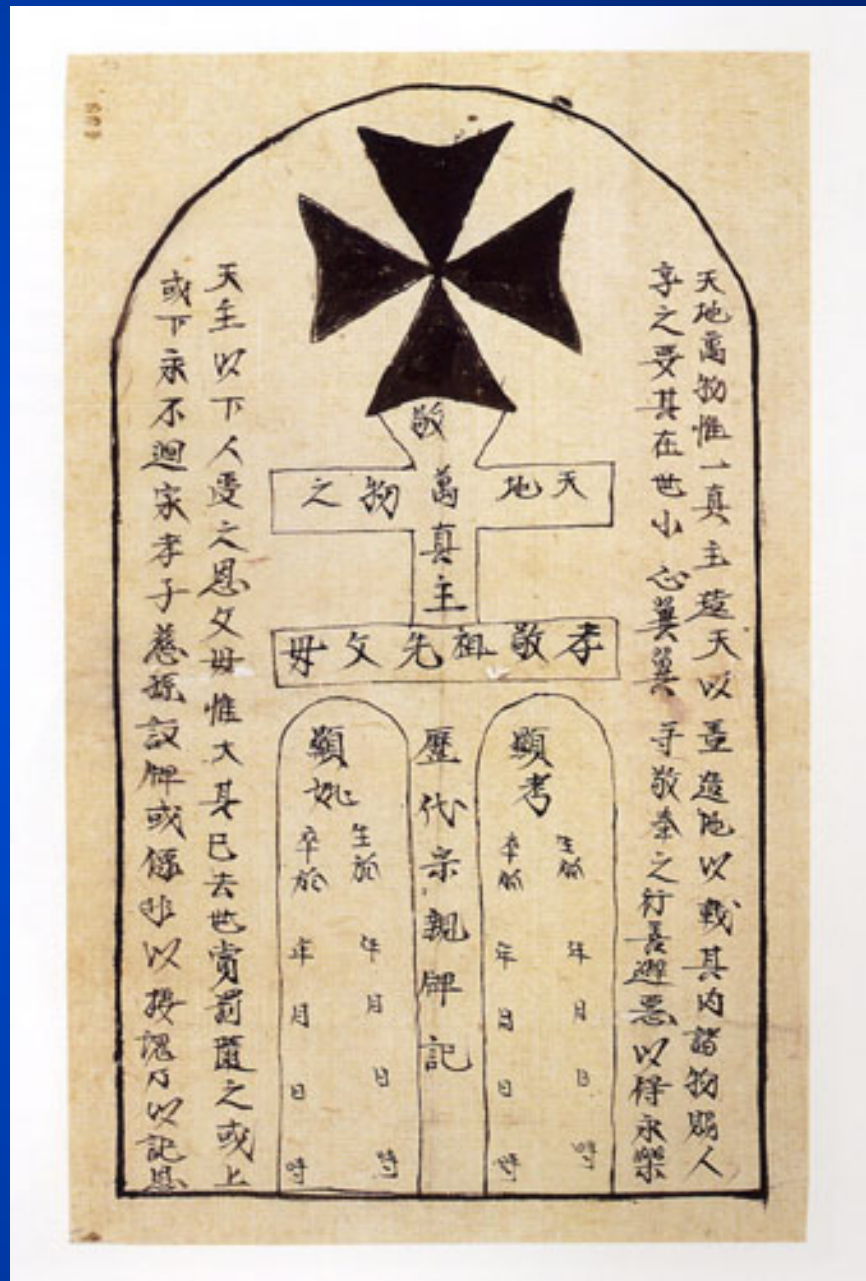 天地萬物惟一真主造天以蓋造地以載其内諸物賜人
享之要其在世小心翼翼 守敬奉之行善避惡以得永樂
敬
天地萬物之
真主
孝敬祖先父母
顯考
生於 年 月 日 時
卒於 年 月 日 時
歷代宗親牌記
顯妣
生於 年 月 日 時
卒於 年 月 日 時
天主以下人受之恩父毋惟大其已去世賞罰之或上
或下永不迴家孝子慈孫設牌或像非以接魂乃以記恩